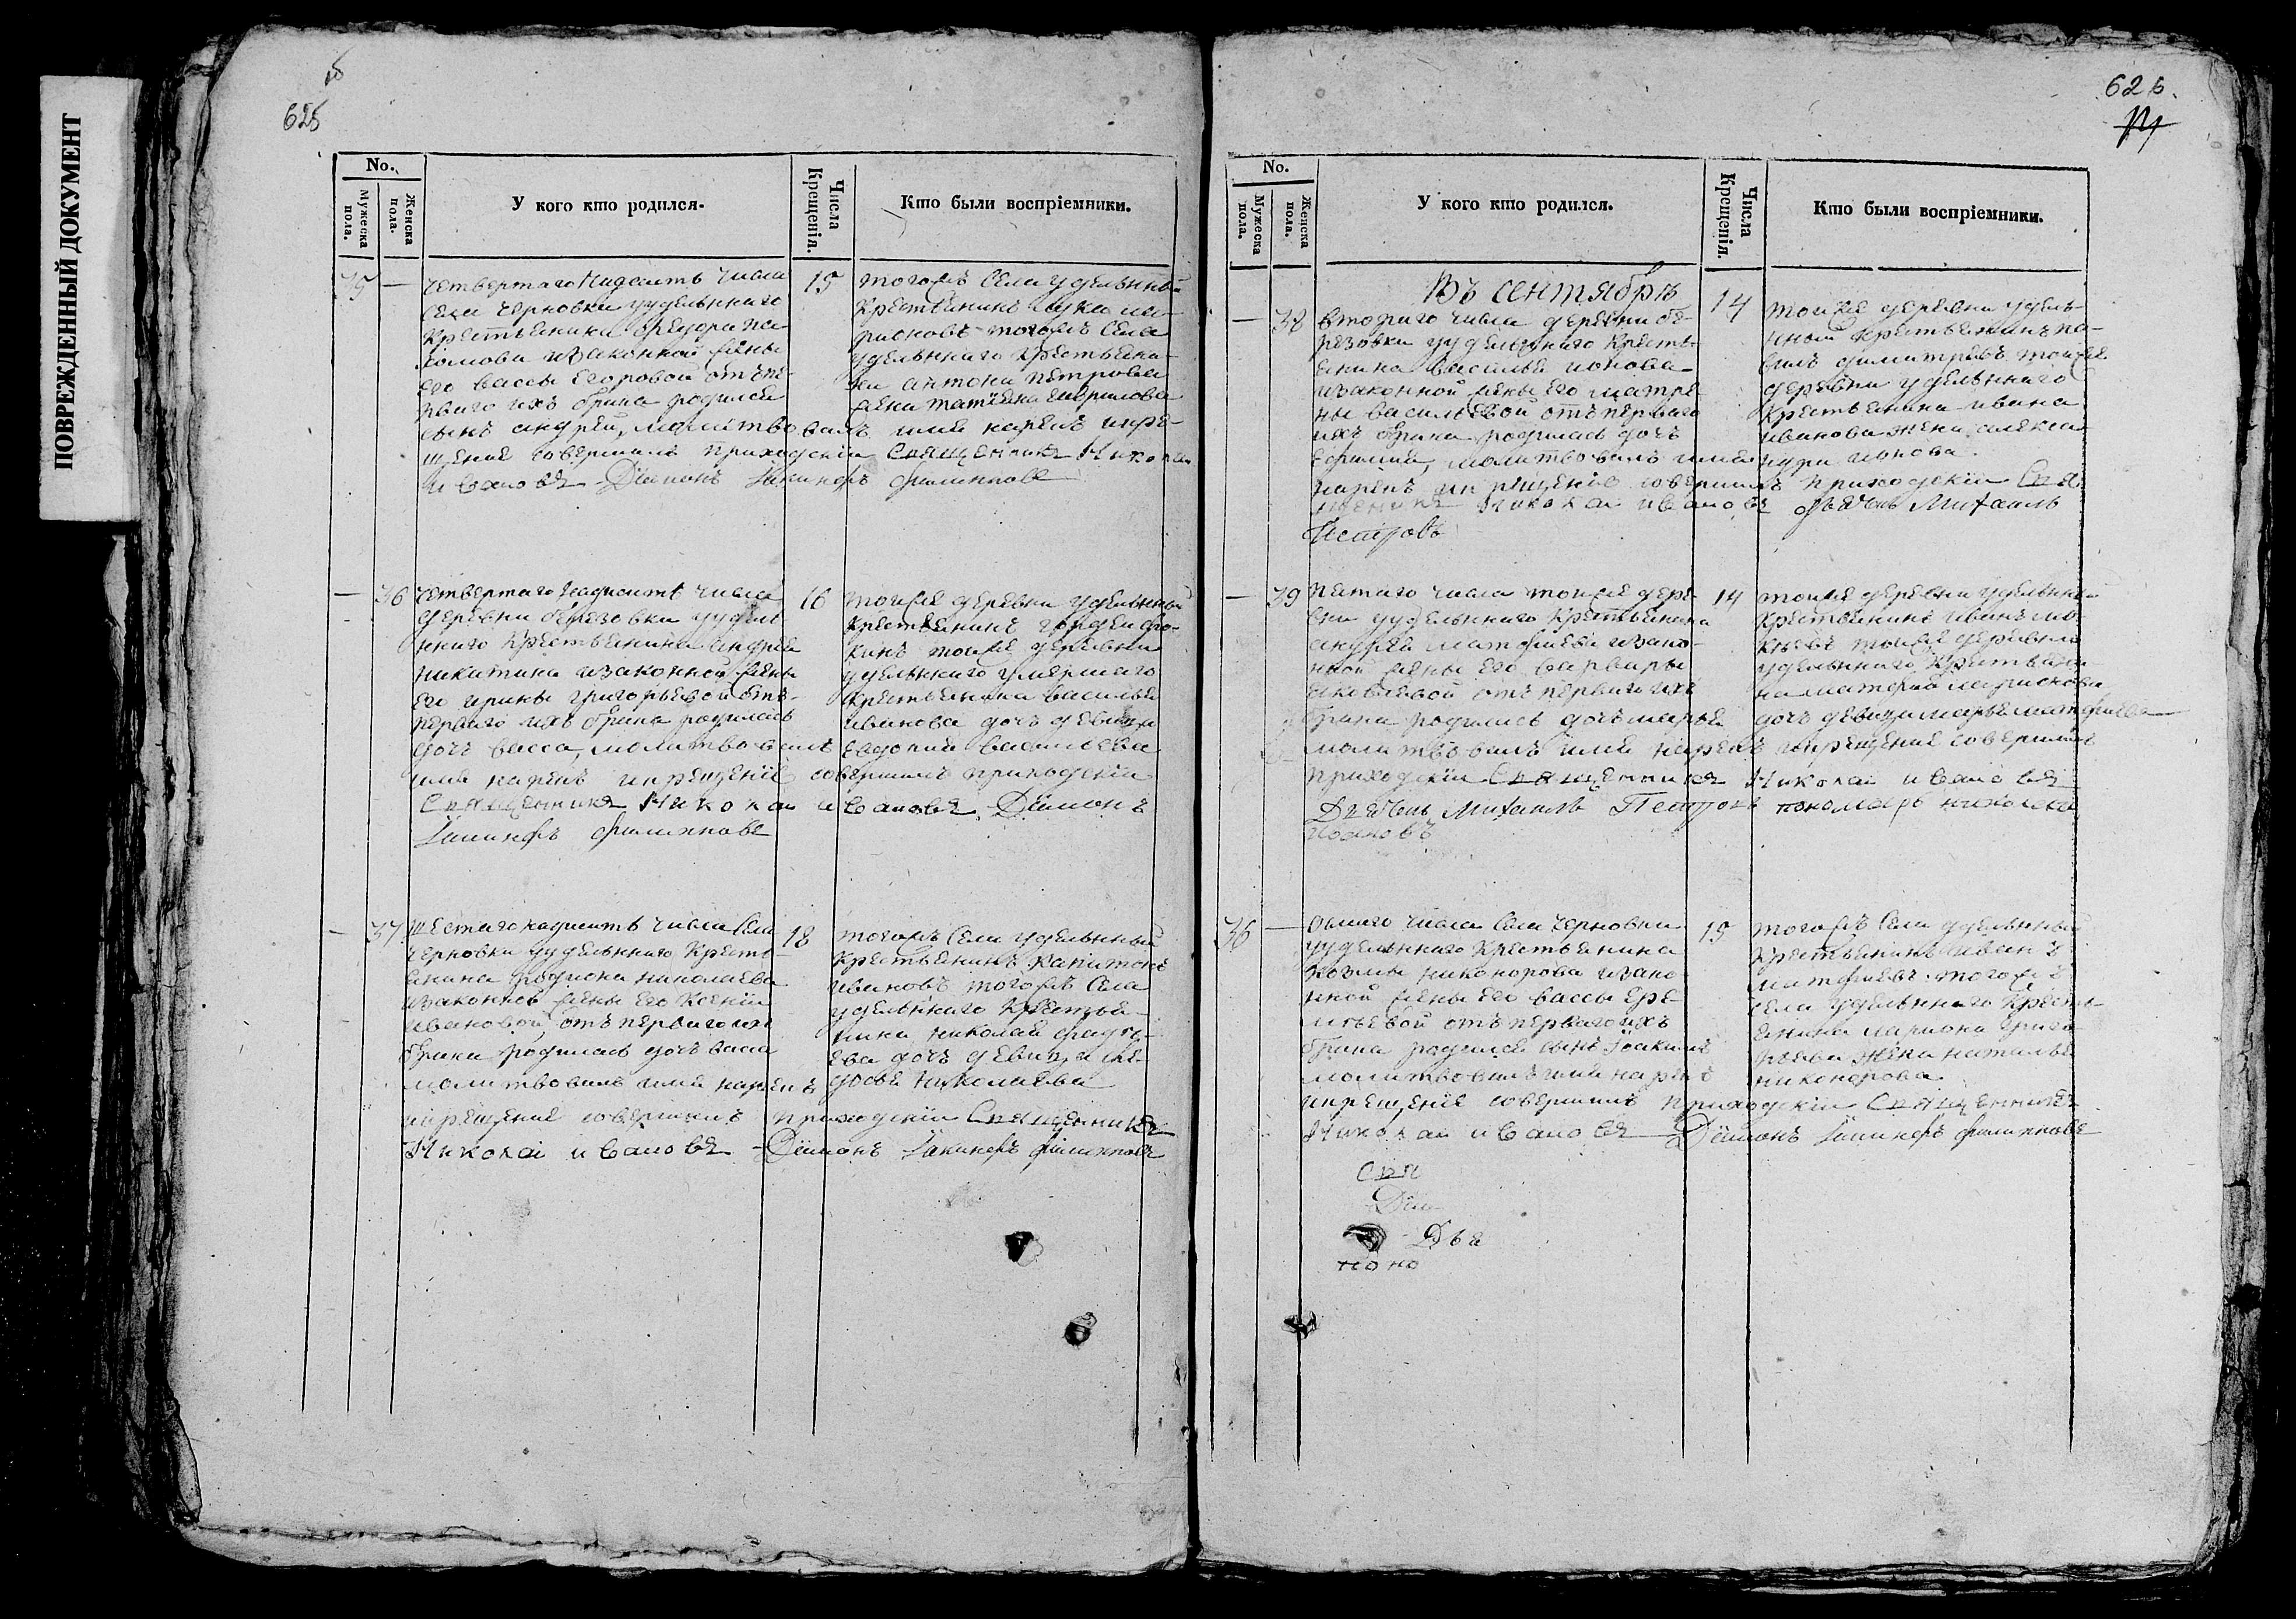 ПОВРЕЖДЕННЫЙ ДОКУМЕНТ
625
No.
Мужеска пола.
Женска пола.
У кого кто родился.
Числа Крещенія.
Кто были воспріемники.
35 —
четвертагонадесять числа
села черновки удѣльнаго
крестьянина
законной жены
его вассы егоровой отъ пе-
рваго ихъ брака родился
сынъ андрей, молитвовалъ имя нарекъ икре-
щение совершилъ приходскіи Священникъ Николаи
ивановъ Діаконъ Iакинфъ филипповъ
15
тогожъ села удѣльный
крестьянинъ лука ла-
рионовъ тогожъ села
удѣльнаго крестьяни-
на антона петрова
жена татьяна
— 36
четвертагонадесятъ числа
деревни березовки удѣль
ннаго крестьянина андрея
никитина законной жены
его ирины григорьевой отъ
перваго ихъ брака родилась
дочь васса, молитвовалъ
имя нарекъ икрещеніе совершилъ приходскіи
Священникъ Николаи ивановъ Діаконъ
Iакинфъ филипповъ
16
тойже деревни удѣльный
крестьянинъ
тойже деревни
удѣльннаго умершаго
крестьянина василья
иванова дочь девица
евдокия васильева
— 37
шестагонадесять числа села
черновки удѣльннаго кресть-
янина родиона николаева
законной жены его ксении
ивановой, отъ перваго ихъ
брака родилась дочь васса
молитвовалъ имя нарекъ
икрещение совершилъ приходскіи Священникъ
Николаі ивановъ - Діаконъ Iакинфъ филипповъ
18
тогожъ села удѣльнный
крестьянинъ капитонъ
ивановъ тогожъ села
удѣльннаго крестья-
нина николая
дочь девица фе-
досья николаева
626.
No.
Мужеска пола.
Женска пола.
У кого кто родился.
Числа Крещенія.
Кто были воспріемники.
Въ сентябрѣ
— 38
втораго числа деревни бе-
резовки удѣльннаго кресть-
янина василья ионова
законной жены его матре
ны васильевой отъ перваго
ихъ брака родилась дочь
молитвовалъ имя
нарекъ икрещеніе совершилъ приходскіи Свя-
щенникъ Николаи ивановъ дьячекъ Михаилъ
Петровъ
14
тоиже деревни удѣль-
нный крестьянинъ па-
велъ димитревъ тоиже
деревни удѣльннаго
крестьянина ивана
иванова жена алекса
ндра ионова.
— 39
пятаго числа тоиже дере-
вни удѣльннаго крестьянина
андрея матфѣева закон-
нной жены его варвары
яковлевой отъ перваго ихъ
брака родилась дочь марья
молитвовалъ имя нарекъ икрещение совершилъ
приходскіи Священникъ Николаи ивановъ
Дьячекъ Михаилъ Петровъ пономарь николаи
14
тоиже деревни удѣльнный
крестьянинъ иванъ
тоиже деревни
удѣльннаго крестьяни-
на матфѣя ларионова
дочь девица марья матфѣева
36 —
осмаго числа села черновки
удѣльннаго крестьянина
козмы никонорова закон-
нной жены его вассы ере-
мѣевой отъ перваго ихъ
брака родился сынъ Iоакимъ
молитвовалъ имя нарекъ
икрещеніе совершилъ приходскіи Священникъ
Николаи ивановъ Діаконъ Iакинфъ филипповъ
15
тогожъ села удѣльнный
крестьянинъ иванъ
матфѣевъ тогожъ
села удѣльннаго кресть-
янина лариона григо
рьева жена наталья
никонорова
Свя
Діа
Дья
поно